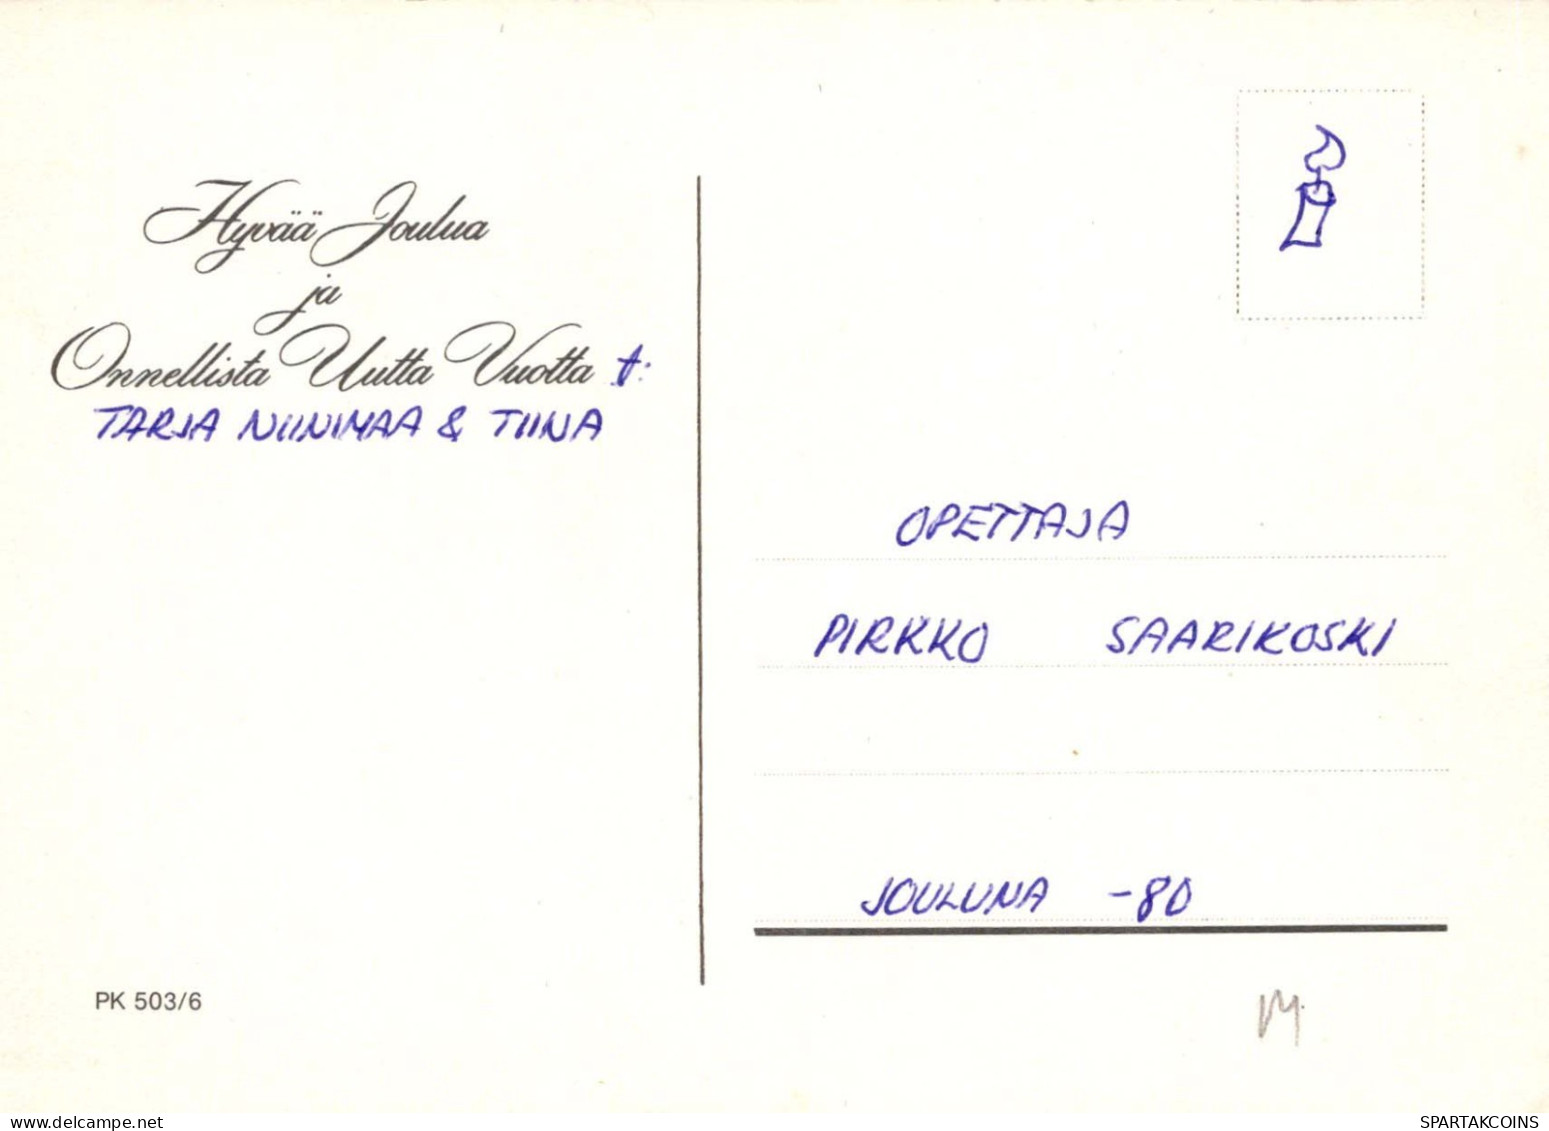 Hyvää Joulua
ja
Onnellista Uutta Vuotta t:
TARJA NIINIMAA & TIINA
OPETTAJA
PIRKKO SAARIKOSKI
JOULUNA -80
PK 503/6
delcampe.net
SPARTAKCOINS